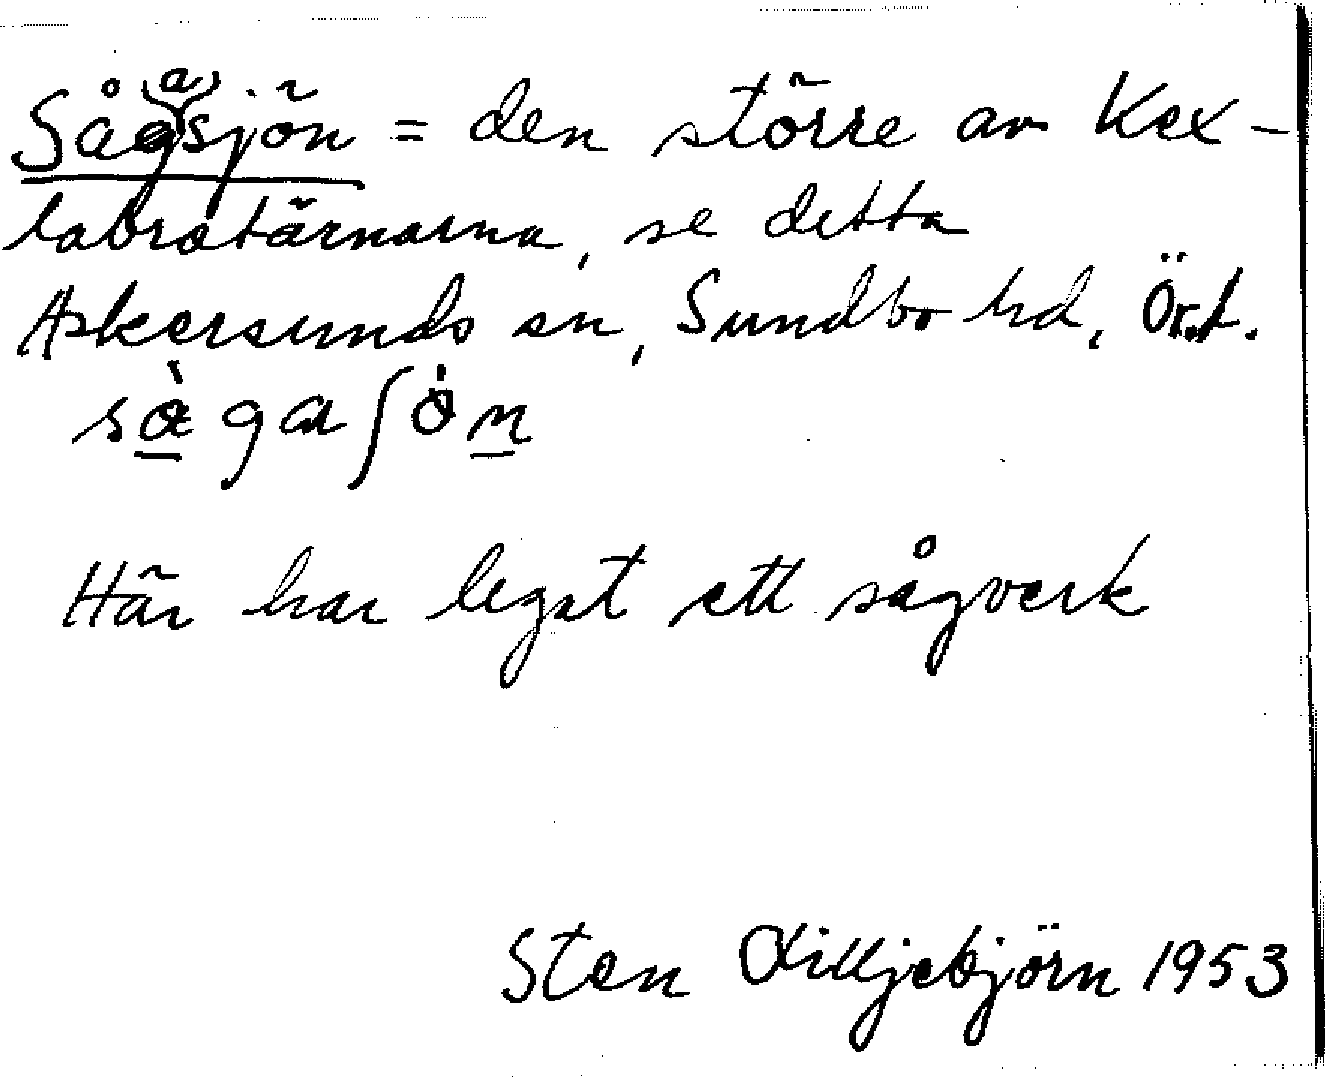 Såg(a)sjön = den större av Kex-
labrotärnarna, se detta
Askersunds sn, Sundbo hd, Ört.
sàgaʃòn
Här har legat ett sågverk
Sten Lilljebjörn 1953